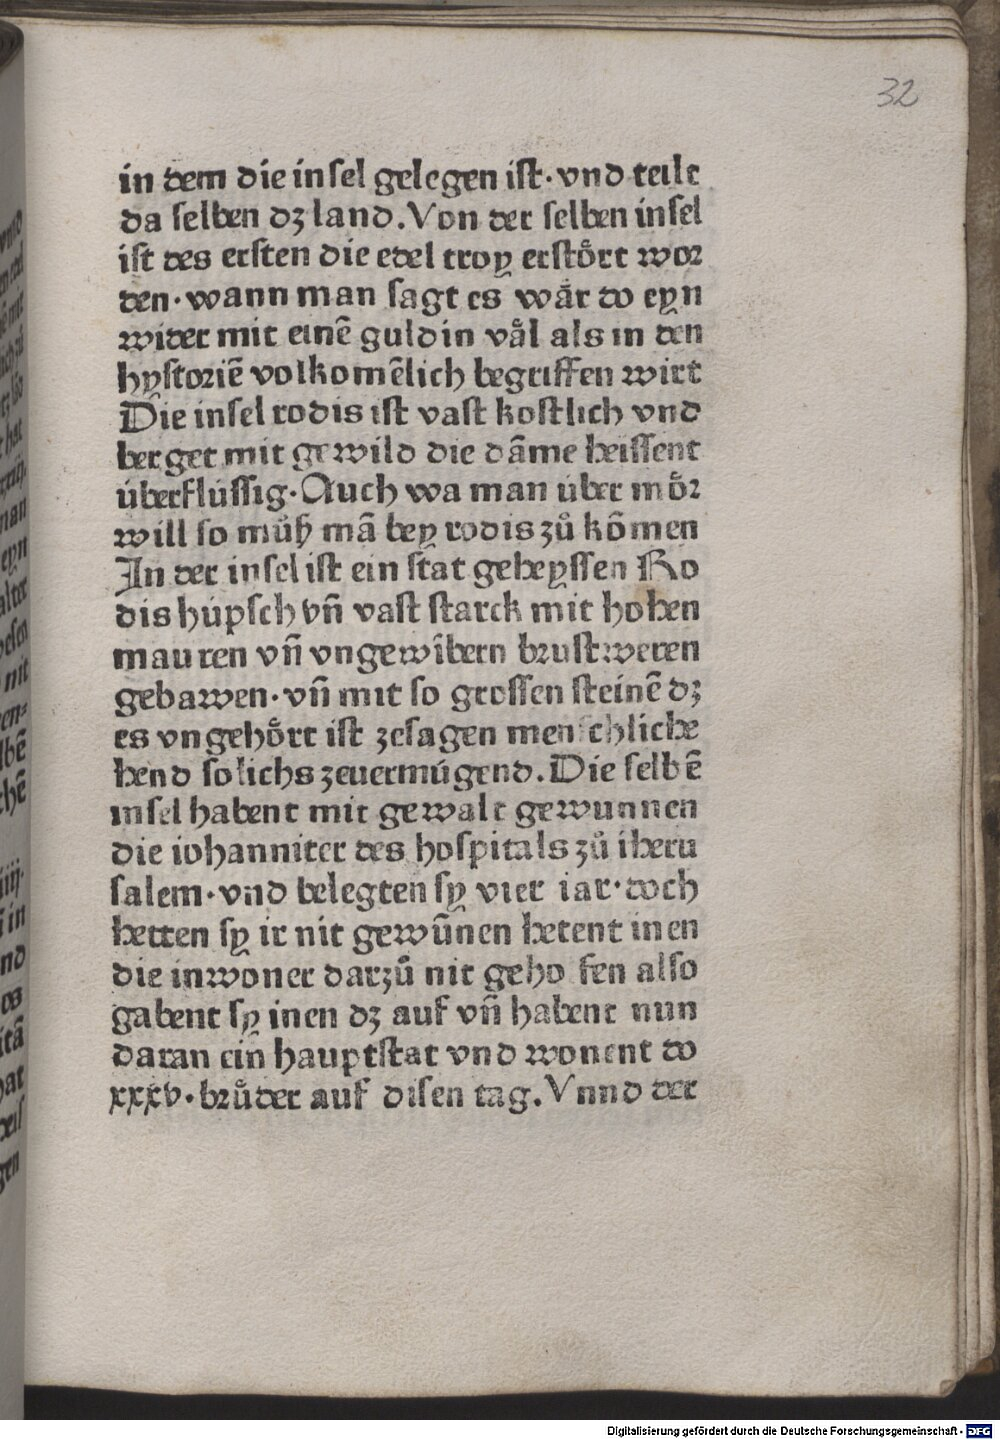 32
in dem die insel gelegen ist·vnd teilt
da selben dz land.Von der selben insel
ist des ersten die edel troy erstoͤrt wor
den·wann man sagt es waͤr do eyn
wider mit einē guldin vaͤl als in den
hystoriē volkomēlich begriffen wirt
Die insel rodis ist vast kostlich vnd
berget mit gewild die dāme heissent
úberflússig·Auch wa man úber moͤr
will so muͦß mā bey rodis zuͦ kōmen
In der insel ist ein stat geheyssen Ro
dis húpsch vn̄ vast starck mit hohen
mauren vn̄ vngewībern brustweren
gebawen·vn̄ mit so grossen steinē dz
es vngehoͤrt ist zesagen menschliche
hend solichs zeuermúgend.Die selbē
insel habent mit gewalt gewunnen
die iohanniter des hospitals zuͦ iheru
salem·vnd belegten sy vier iar·doch
hetten sy ir nit gewūnen hetent inen
die inwoner darzuͦ nit geho fen also
gabent sy inen dz auf vn̄ habent nun
daran ein hauptstat vnd wonent do
xxxv·bruͦder auf disen tag.Vnnd der
Digitalisierung gefördert durch die Deutsche Forschungsgemeinschaft - DFG